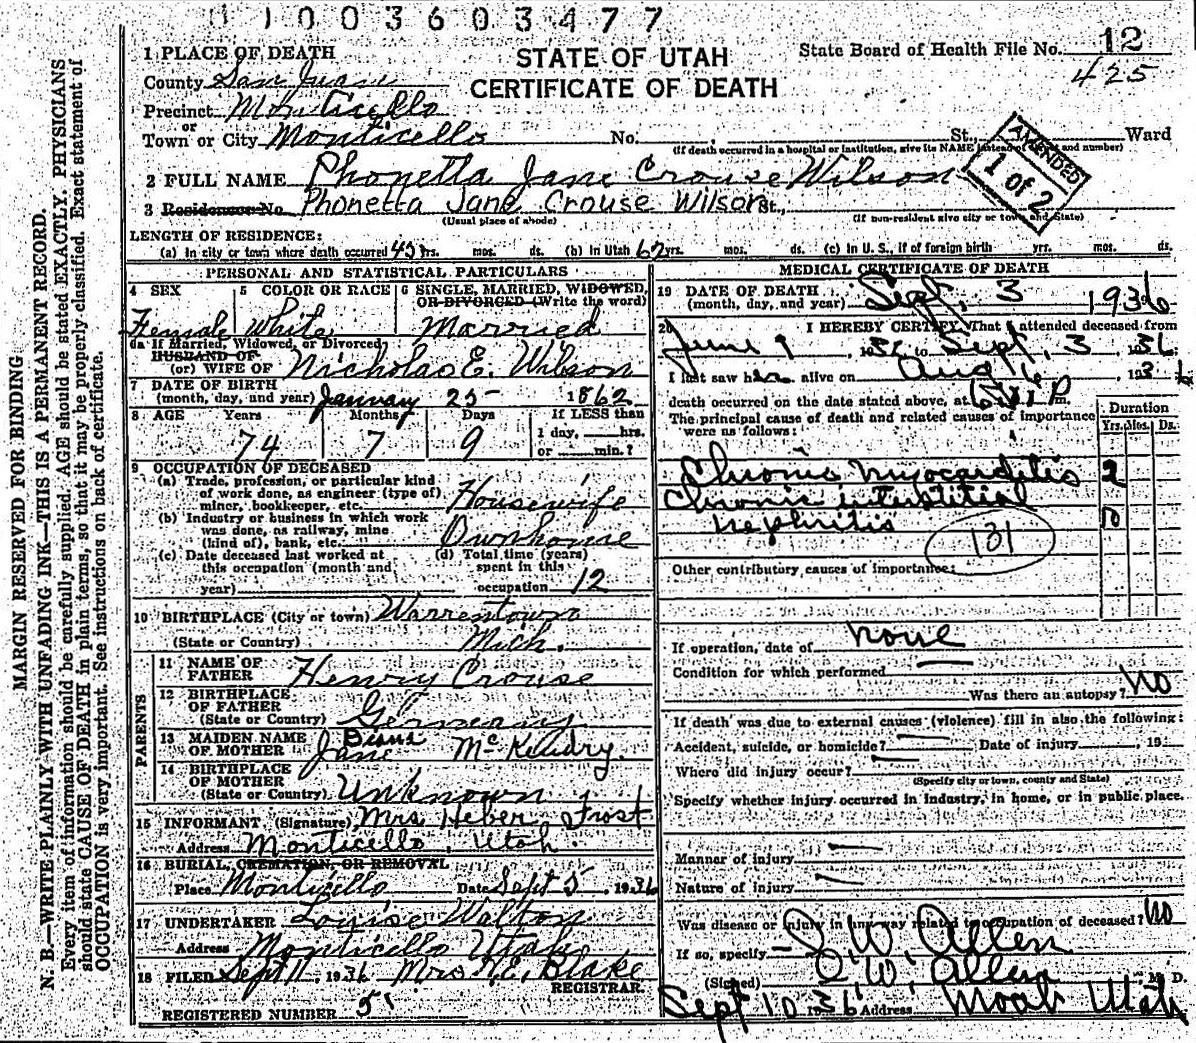 0 1 0 0 3 6 0 3 4 7 7
MARGIN RESERVED FOR BINDING
N. B.—WRITE PLAINLY WITH UNFADING INK—THIS IS A PERMANENT RECORD.
Every item of information should be carefully supplied. AGE should be stated EXACTLY. PHYSICIANS
should state CAUSE OF DEATH in plain terms, so that it may be properly classified. Exact statement of
OCCUPATION is very important. See instructions on back of certificate.
STATE OF UTAH
CERTIFICATE OF DEATH
State Board of Health File No. 12
425
1 PLACE OF DEATH
County San Juan
Precinct Monticello
or
Town or City Monticello No. , St., Ward
(If death occurred in a hospital or institution, give its NAME instead of street and number)
AMENDED
1 of 2
2 FULL NAME Phonetta Jane Crouse Wilson
3 Residence No. Phonetta Jane Crouse Wilson St.,
(Usual place of abode) (If non-resident give city or town and State)
LENGTH OF RESIDENCE:
(a) In city or town where death occurred 45 yrs. mos. ds. (b) In Utah 62 yrs. mos. ds. (c) In U. S., if of foreign birth yrs. mos. ds.
PERSONAL AND STATISTICAL PARTICULARS
4 SEX 5 COLOR OR RACE 6 SINGLE, MARRIED, WIDOWED,
OR DIVORCED (Write the word)
Female White Married
6a If Married, Widowed, or Divorced
HUSBAND OF
(or) WIFE OF Nicholas E. Wilson
7 DATE OF BIRTH
(month, day, and year) January 25 1862
8 AGE Years Months Days If LESS than
1 day, hrs.
or min.?
74 7 9
9 OCCUPATION OF DECEASED
(a) Trade, profession, or particular kind
of work done, as engineer (type of)
miner, bookkeeper, etc. Housewife
(b) Industry or business in which work
was done, as railway, mine
(kind of), bank, etc. Own home
(c) Date deceased last worked at
this occupation (month and
year)
(d) Total time (years)
spent in this
occupation 12
10 BIRTHPLACE (City or town) Warrentown
(State or Country) Mich.
PARENTS
11 NAME OF
FATHER Henry Crouse
12 BIRTHPLACE
OF FATHER
(State or Country) Germany
13 MAIDEN NAME
OF MOTHER Jane McKendry
14 BIRTHPLACE
OF MOTHER
(State or Country) Unknown
15 INFORMANT (Signature) Mrs. Heber Frost
Address Monticello, Utah.
16 BURIAL, CREMATION, OR REMOVAL
Place Monticello Date Sept 5, 1936
17 UNDERTAKER Louise Walton
Address Monticello Utah
18 FILED Sept 11, 1936 Mrs. N.E. Blake
REGISTRAR.
REGISTERED NUMBER 5
MEDICAL CERTIFICATE OF DEATH
19 DATE OF DEATH
(month, day, and year) Sept. 3 1936
20 I HEREBY CERTIFY, That I attended deceased from
June 1, 1936 to Sept. 3 1936.
I last saw her alive on Aug 16, 193
death occurred on the date stated above, at P m.
The principal cause of death and related causes of importance
were as follows:
Duration
Yrs. Mos. Ds.
Chronic myocarditis 2
Chronic interstitial
Nephritis 10
131
Other contributory causes of importance:
If operation, date of none
Condition for which performed
Was there an autopsy? No
If death was due to external causes (violence) fill in also the following:
Accident, suicide, or homicide? Date of injury , 19
Where did injury occur?
(Specify city or town, county and State)
Specify whether injury occurred in industry, in home, or in public place.
Manner of injury
Nature of injury
Was disease or injury in any way related to occupation of deceased? No
If so, specify I. W. Allen
(Signed) I. W. Allen M. D.
Sept 10 1936 Address Moab Utah